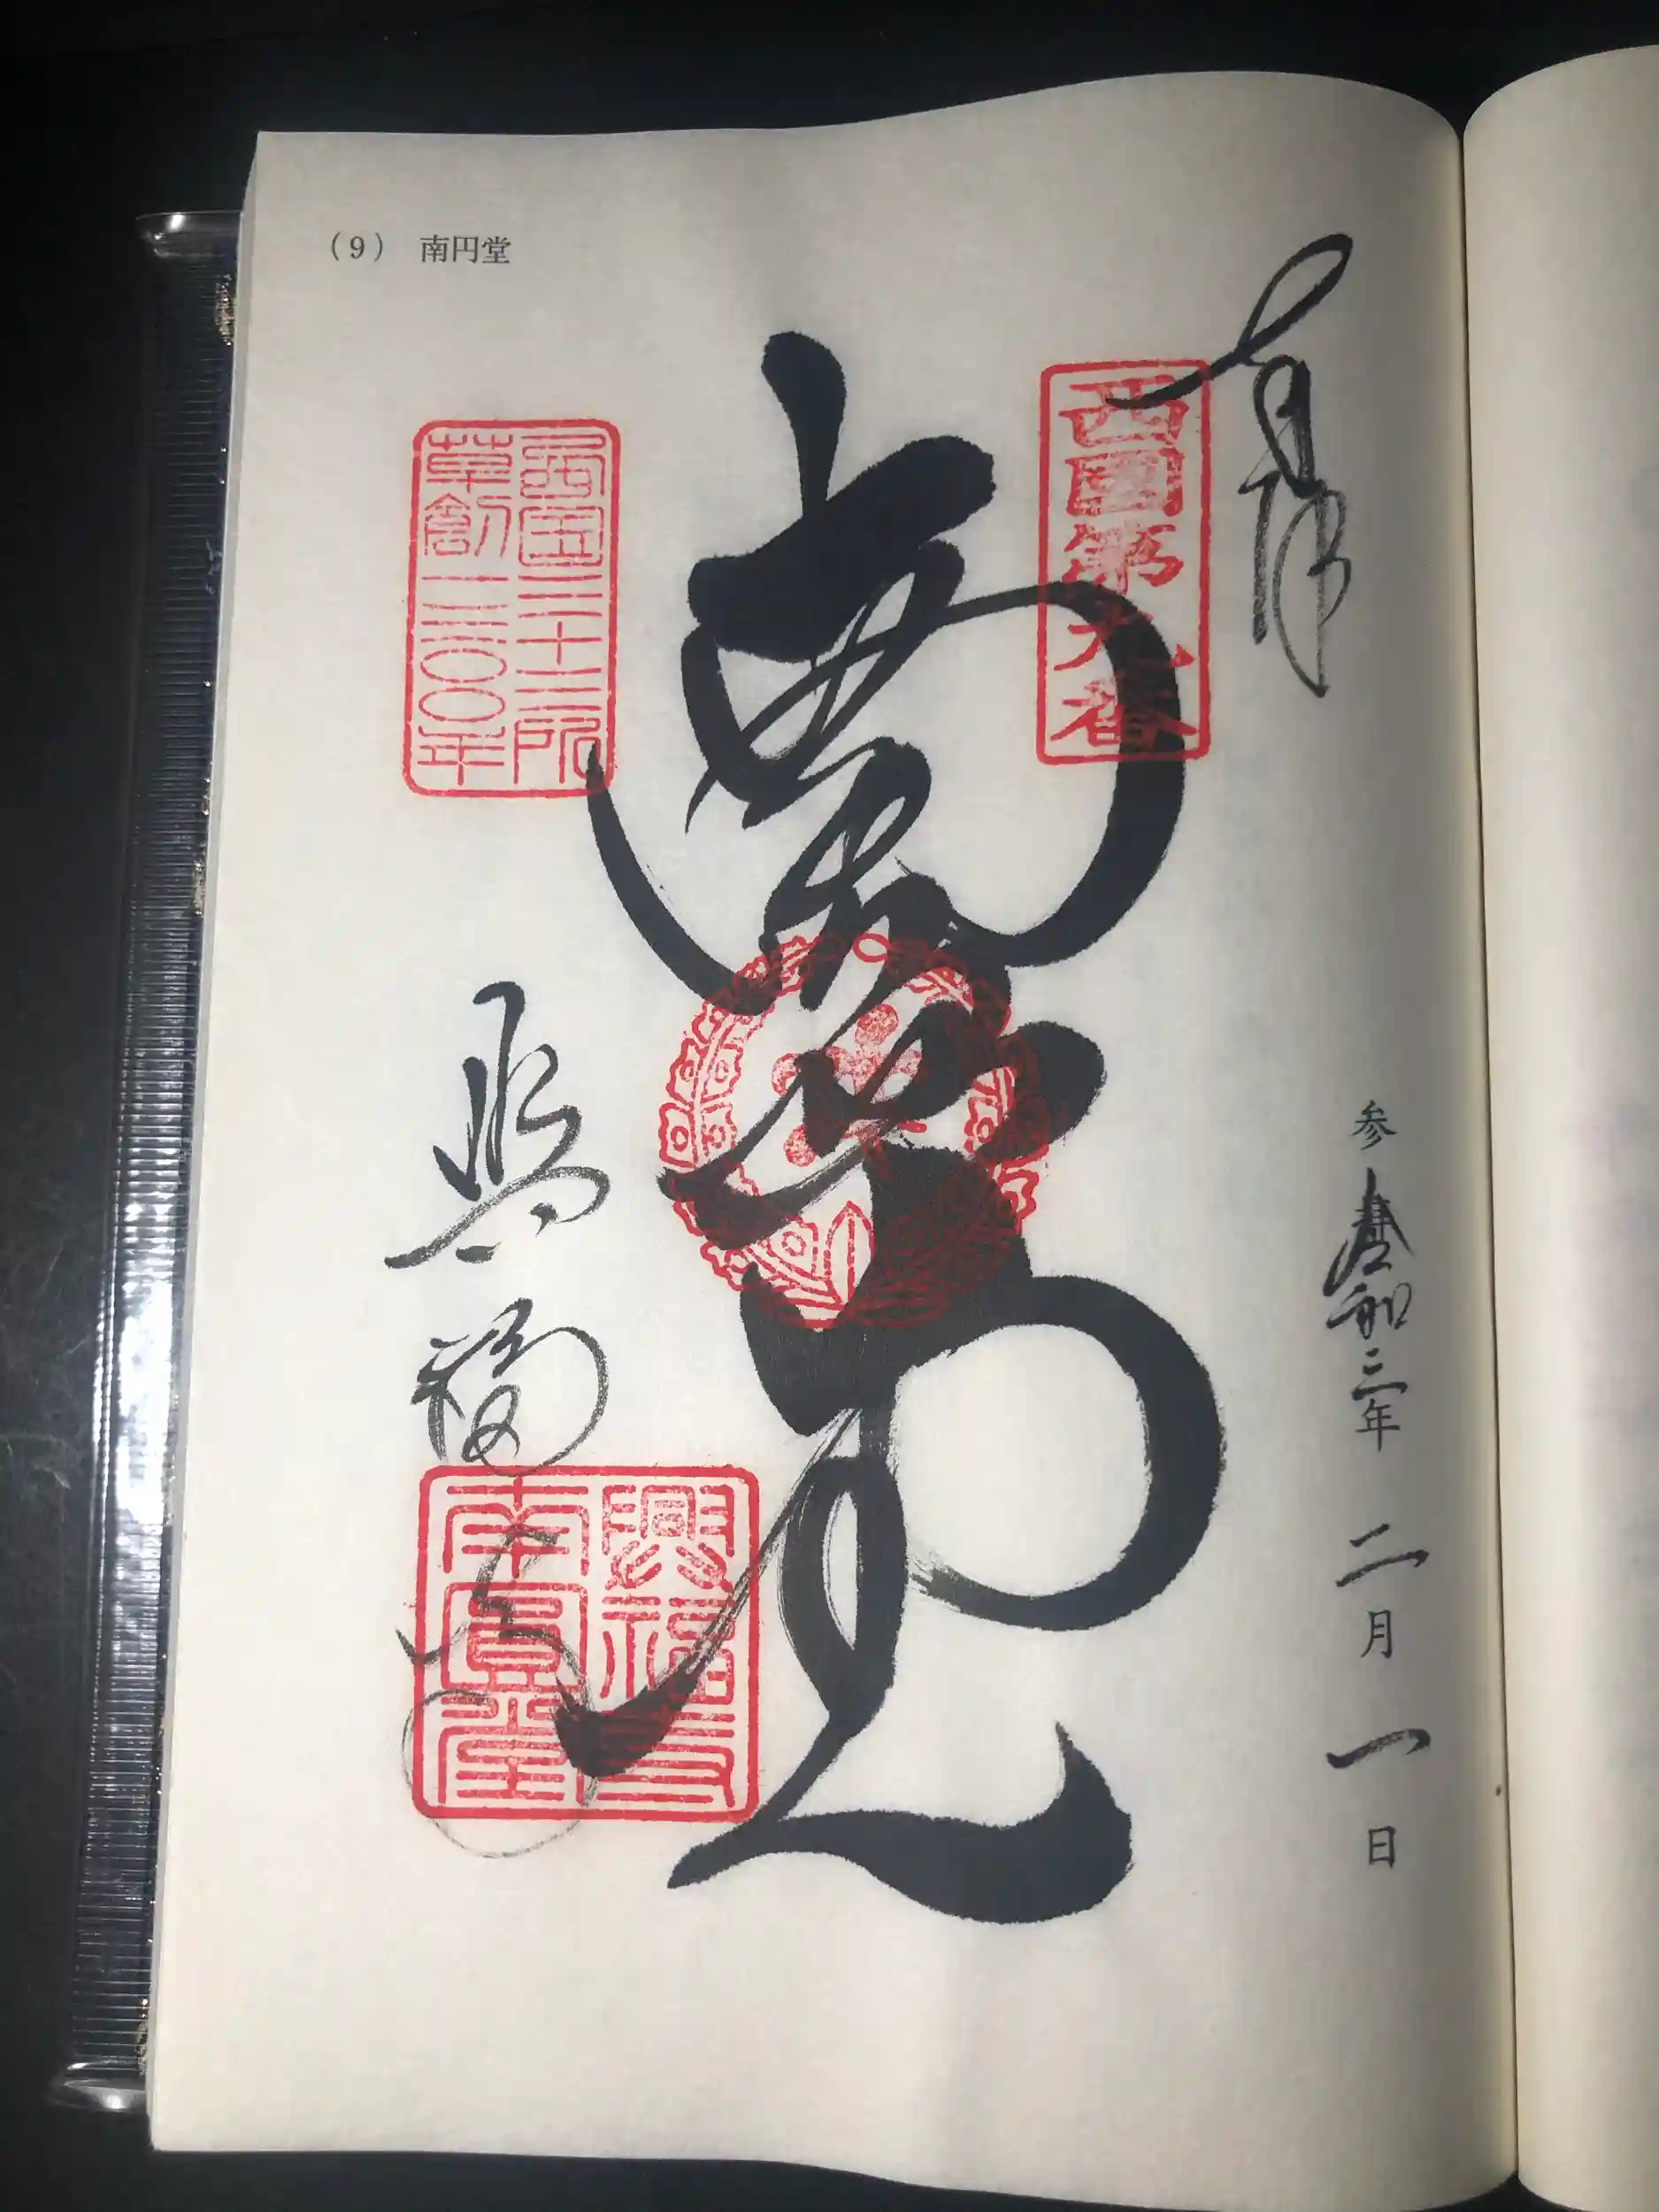 (9) 南円堂
奉拝
西國第九番
参 令和三年 二月 一日
南圓堂
西国三十三所
草創一三〇〇年
興福寺
興福寺
南圓堂